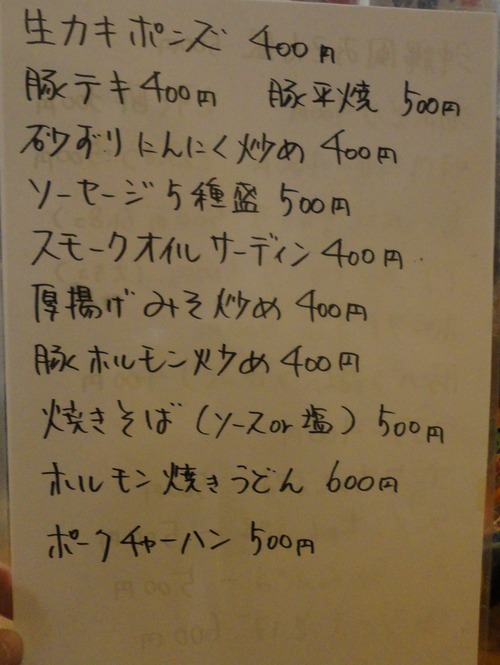 生カキポンズ 400円
豚テキ 400円 豚平焼 500円
砂ずりにんにく炒め 400円
ソーセージ5種盛 500円
スモークオイルサーディン 400円
厚揚げみそ炒め 400円
豚ホルモン炒め 400円
焼きそば(ソースor塩) 500円
ホルモン焼きうどん 600円
ポークチャーハン 500円